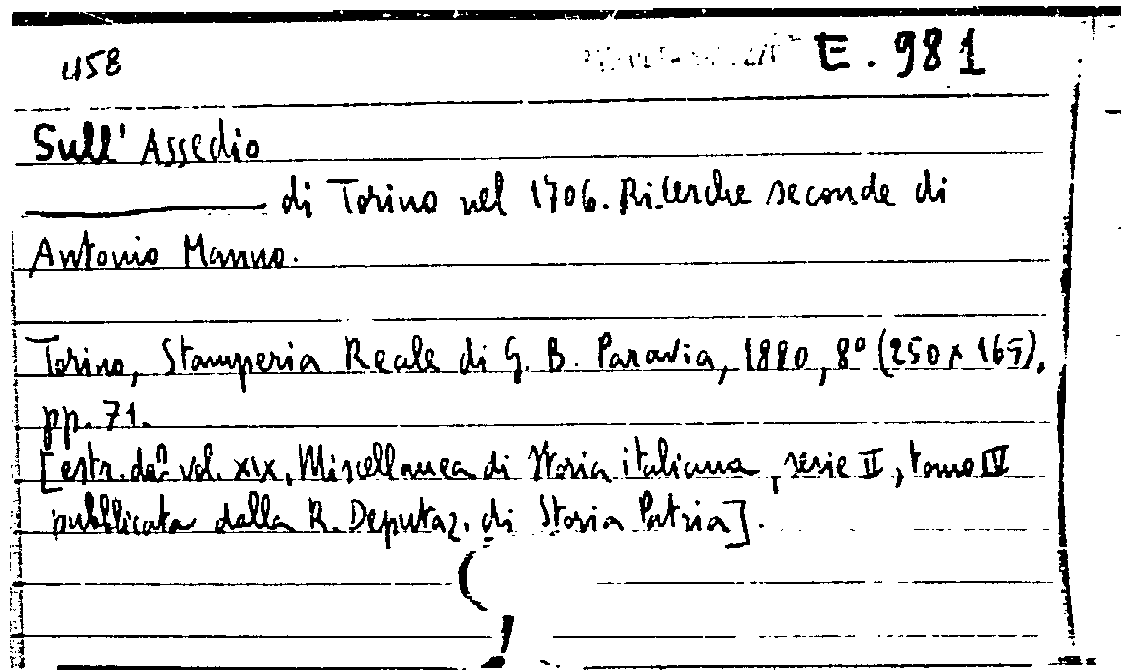 458 E. 981
Sull' Assedio
di Torino nel 1706. Ricerche seconde di
Antonio Manno.
Torino, Stamperia Reale di G. B. Paravia, 1880, 8° (250 x 165),
pp. 71.
[estr. dal vol. XIX, Miscellanea di Storia italiana, serie II, tomo IV
pubblicata dalla R. Deputaz. di Storia Patria].